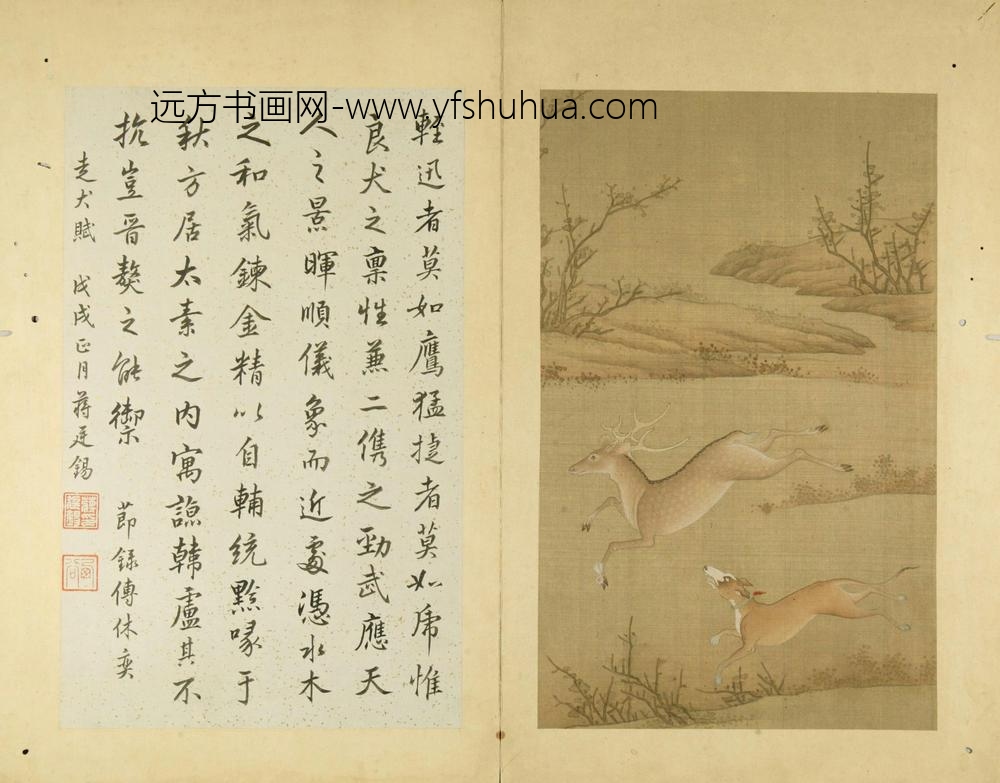 远方书画网-www.yfshuhua.com
輕迅者莫如鷹猛捷者莫如虎惟
良犬之稟性蓋二儁之勁武應天
人之景暉順儀象而近處憑水木
之和氣鍊金精以自輔統黔喙于
秋方居太素之內寓諒韓盧其不
抗豈晉獒之能禦 節錄傅休奕
走犬賦 戊戌正月蔣廷錫